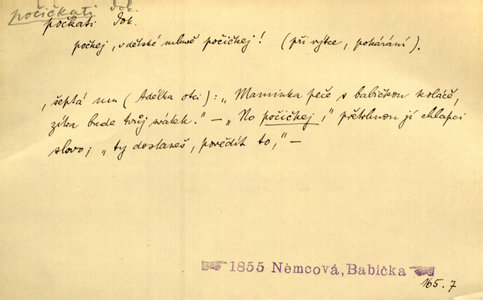 počičkati dok.
počkati dok.
počkej, v dětské mluvě počičkej! (při výtce, pokárání).
, šeptá mu (Adélka otci): „Maminka peče s babičkou koláče,
zítra bude tvůj svátek." – „No počičkej," přetrhnou jí chlapci
slovo; „ty dostaneš, povědít to," –
1855 Němcová, Babička
165.7